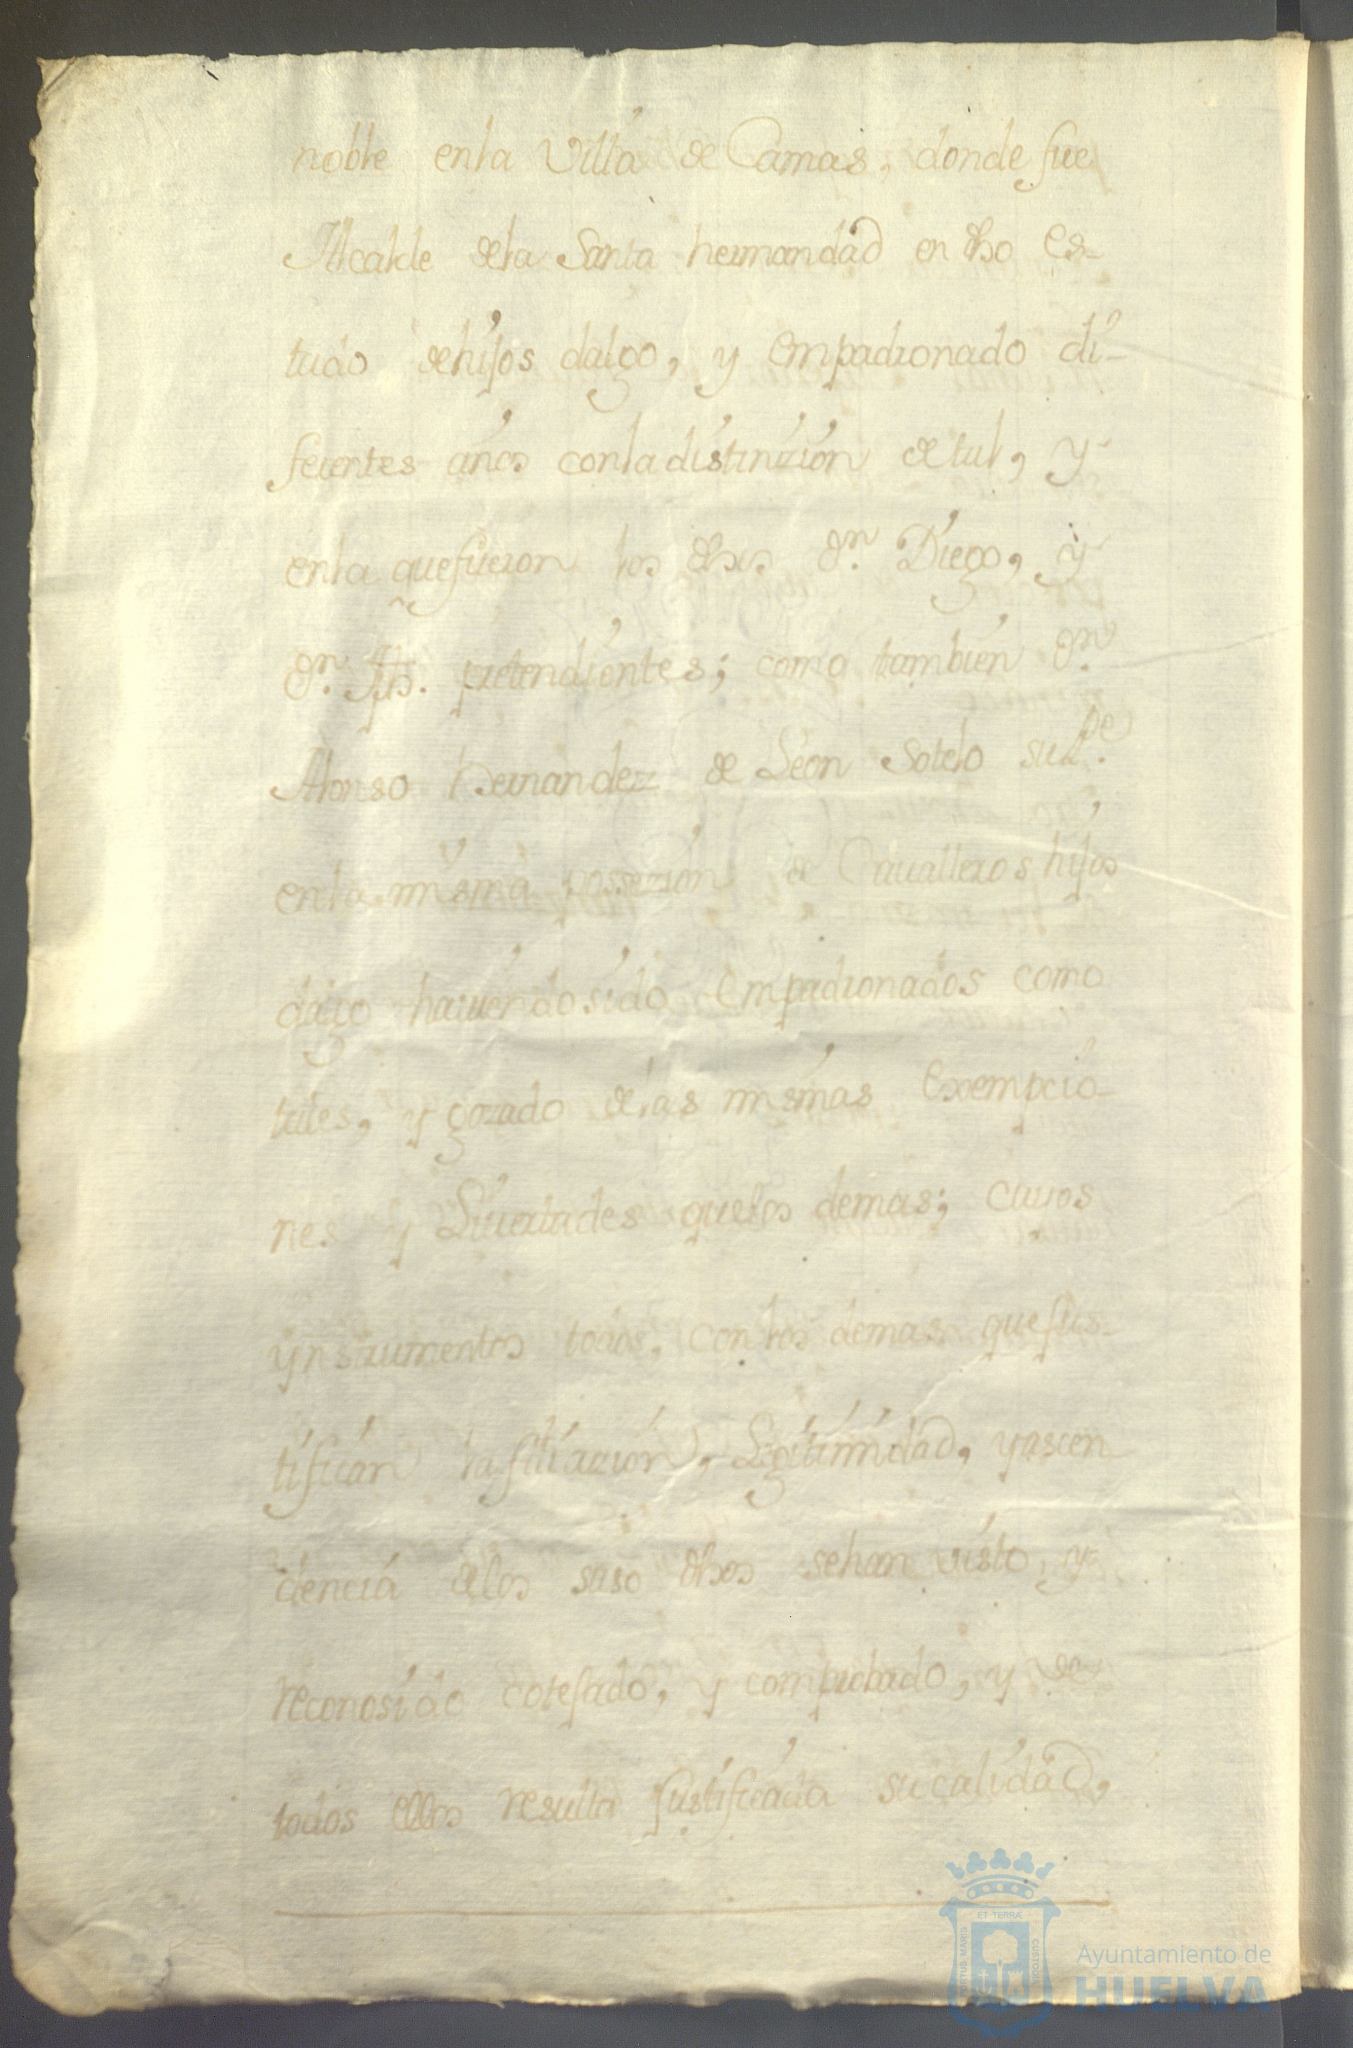 noble enla Villa de Camas, donde fue
Alcalde dela Santa hermandad en dho es-
tado de hijos dalgo, y empadronado di-
ferentes años conla distinzion de tal, y
enla que fueron los dhos Dn. Diego, y
Dn. pretendientes; como tambien Dn.
Alonso Hernandez de Leon Sotelo su Pe.
enla misma possezion de Cavalleros hijos
dalgo haviendo sido empadronados como
tales, y gozado delas mismas Exempcio-
nes y Livertades quelos demas; cuios
ynstrumentos todos, con los demas que jus-
tifican la filiazion, Legitimidad, y ascen
dencia delos suso dhos sehan visto, y
reconosido cotejado, y comprobado, y de
todos ellos resulta justificada su calidad,
PORTUS MARIS ET TERRÆ CUSTODIA
Ayuntamiento de
HUELVA